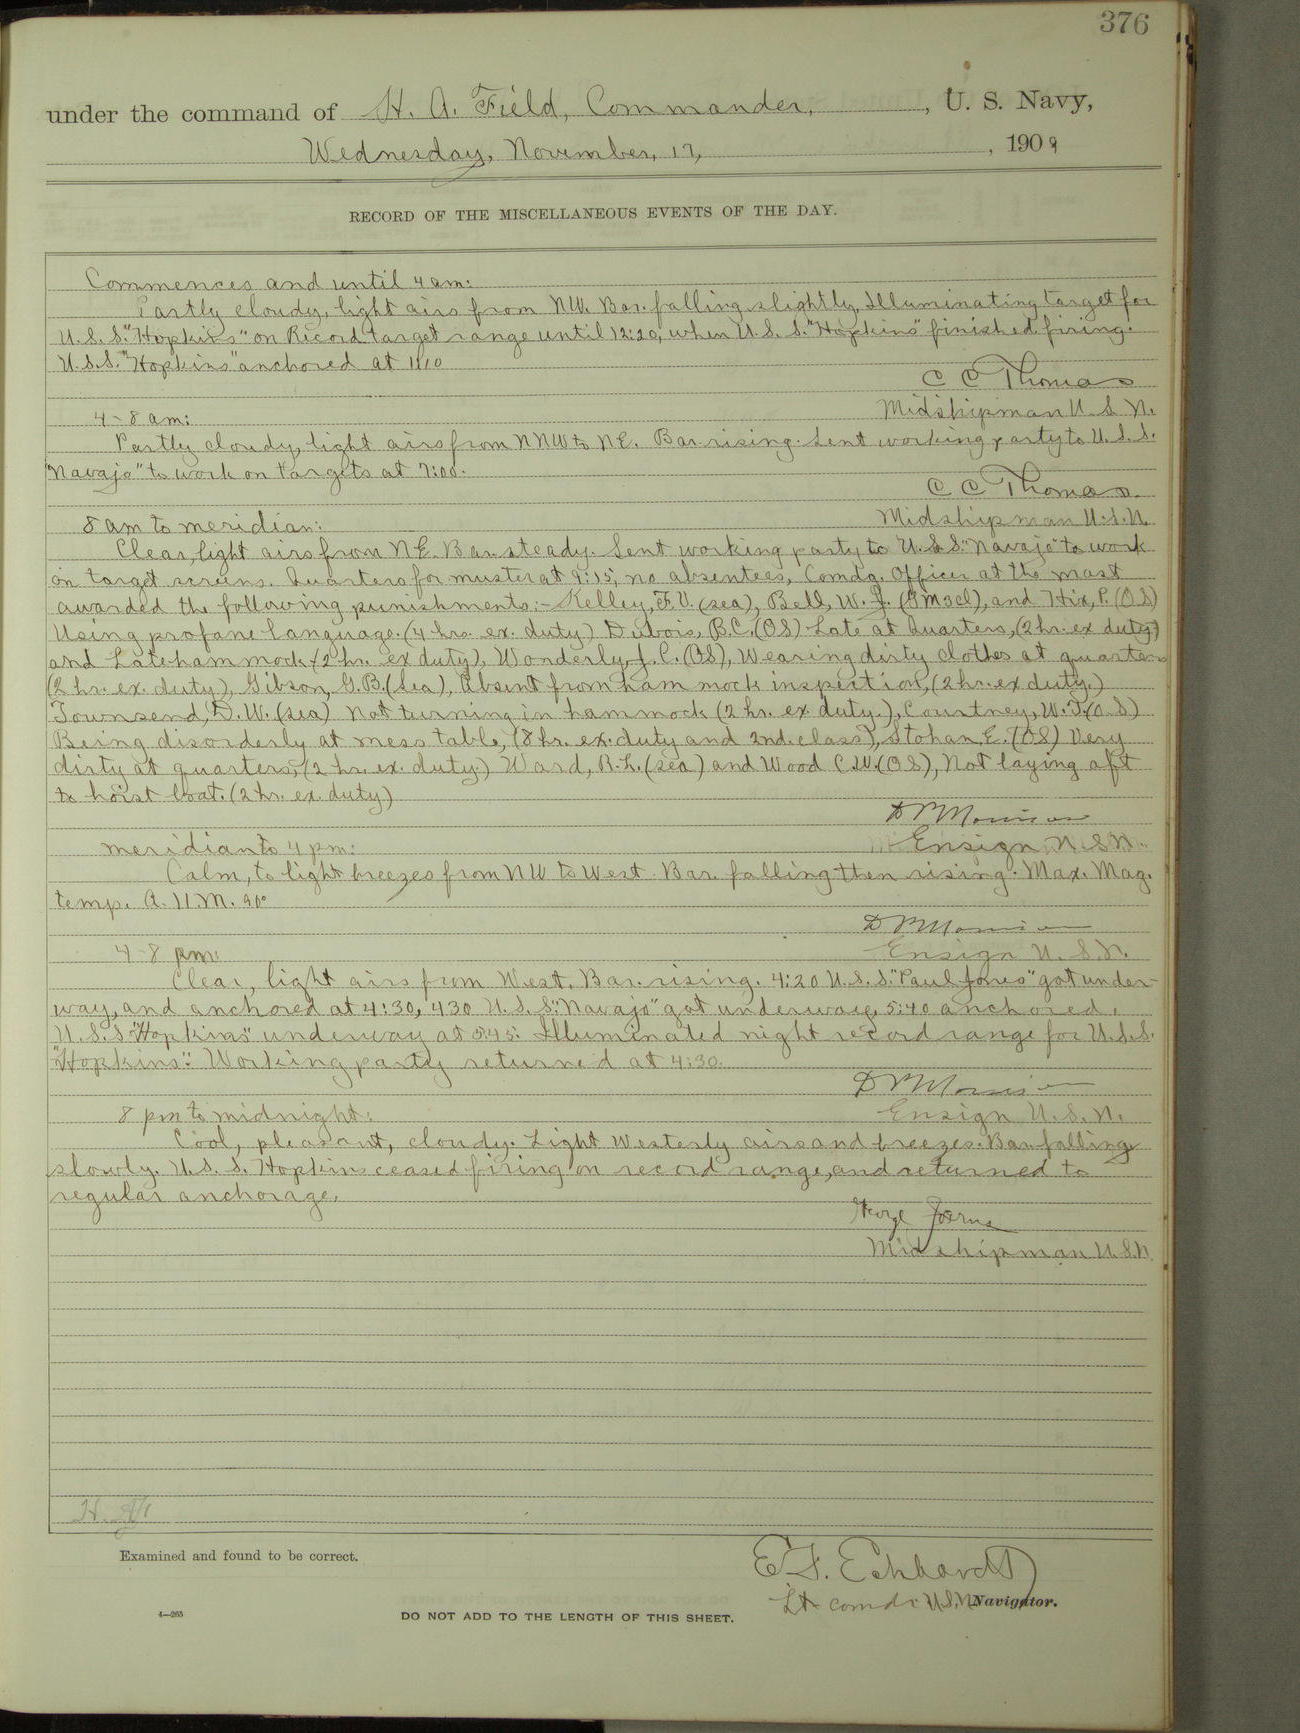 376
under the command of H. A. Field, Commander, , U. S. Navy,
Wednesday, November, 17, , 1909
RECORD OF THE MISCELLANEOUS EVENTS OF THE DAY.
Commences and until 4 am:
Partly cloudy, light airs from NW. Bar. falling slightly, Illuminating target for
U.S.S. "Hopkins" on Record target range until 12:20, when U.S.S. "Hopkins" finished firing.
U.S.S. "Hopkins" anchored at 1:10
C C Thomas
Midshipman U.S.N.
4-8 am:
Partly cloudy, light airs from NNW to NE. Bar. rising. Sent working party to U.S.S.
"Navajo" to work on targets at 7:00.
C C Thomas
Midshipman U.S.N.
8 am to meridian:
Clear, light airs from NE. Bar. steady. Sent working party to U.S.S. "Navajo" to work
on target screens. Quarters for muster at 9:15, no absentees, Comdg. Officer at the mast
awarded the following punishments:- Kelley, F.V. (sea), Bell, W. J. (GM3cl), and Hix, P. (OS)
Using profane language. (4 hrs. ex. duty) Dubois, B.C. (OS) Late at Quarters, (2 hr. ex duty)
and Late hammock (2 hr. ex duty), Wonderly, J. C. (OS), Wearing dirty clothes at quarters
(2 hr. ex. duty), Gibson, G.B. (Sea), Absent from hammock inspection, (2 hr. ex duty.)
Townsend, D.W. (sea) Not turning in hammock (2 hr. ex. duty.), Courtney, W.T. (O.S)
Being disorderly at mess table, (8 hr. ex. duty and 2nd. class), Stohan, E. (OS) Very
dirty at quarters, (2 hr. ex. duty.) Ward, R.L. (sea) and Wood C.W. (OS), Not laying aft
to hoist boat. (2 hr. ex. duty)
Ensign U.S.N.
meridian to 4 pm:
Calm, to light breezes from NW to West. Bar. falling then rising. Max. Mag.
temp. 90°
Ensign U.S.N.
4-8 pm:
Clear, light airs from West. Bar. rising. 4:20 U.S.S. "Paul Jones" got under-
way, and anchored at 4:30, 4:30 U.S.S. "Navajo" got underway, 5:40 anchored.
U.S.S "Hopkins" underway at 5:45. Illuminated night record range for U.S.S.
"Hopkins". Working party returned at 4:30.
Ensign U.S.N.
8 pm to midnight:
Cool, pleasant, cloudy. Light Westerly airs and breezes. Bar. falling
slowly. U.S.S. Hopkins ceased firing on record range, and returned to
regular anchorage.
Midshipman U.S.N.
Examined and found to be correct.
Lt-comdr U.S.N. Navigator.
4—265
DO NOT ADD TO THE LENGTH OF THIS SHEET.